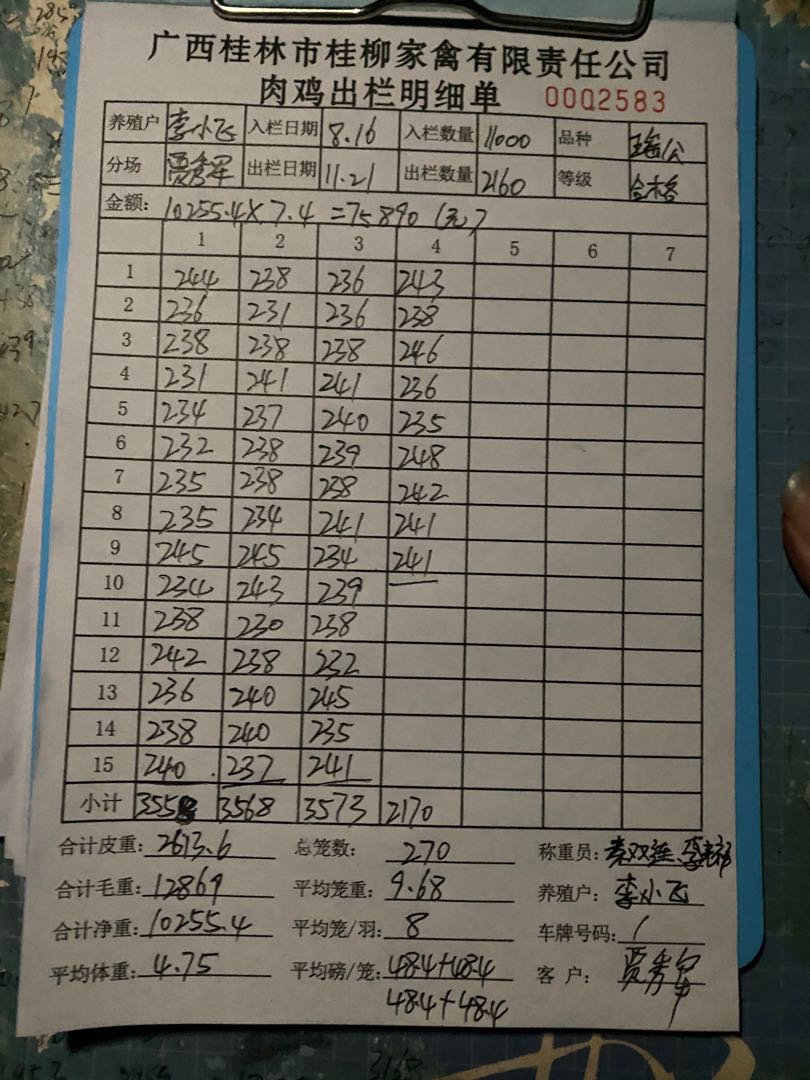 广西桂林市桂柳家禽有限责任公司
肉鸡出栏明细单 0002583
养殖户 李小飞 入栏日期 8.16 入栏数量 11000 品种 瑶公
分场 贾秀军 出栏日期 11.21 出栏数量 2160 等级 合格
金额: 10255.4×7.4=75890(元)
1 2 3 4 5 6 7
1 244 238 236 243
2 236 231 236 238
3 238 238 238 246
4 231 241 241 236
5 234 237 240 235
6 232 238 239 248
7 235 238 238 242
8 235 234 241 241
9 245 245 234 241
10 234 243 239
11 238 230 238
12 242 238 232
13 236 240 245
14 238 240 235
15 240 237 241
小计 3558 3568 3573 2170
合计皮重: 2613.6 总笼数: 270 称重员:
合计毛重: 12869 平均笼重: 9.68 养殖户: 李小飞
合计净重: 10255.4 平均笼/羽: 8 车牌号码: /
平均体重: 4.75 平均磅/笼: 48.4+48.4 客户: 贾秀军
48.4+48.4